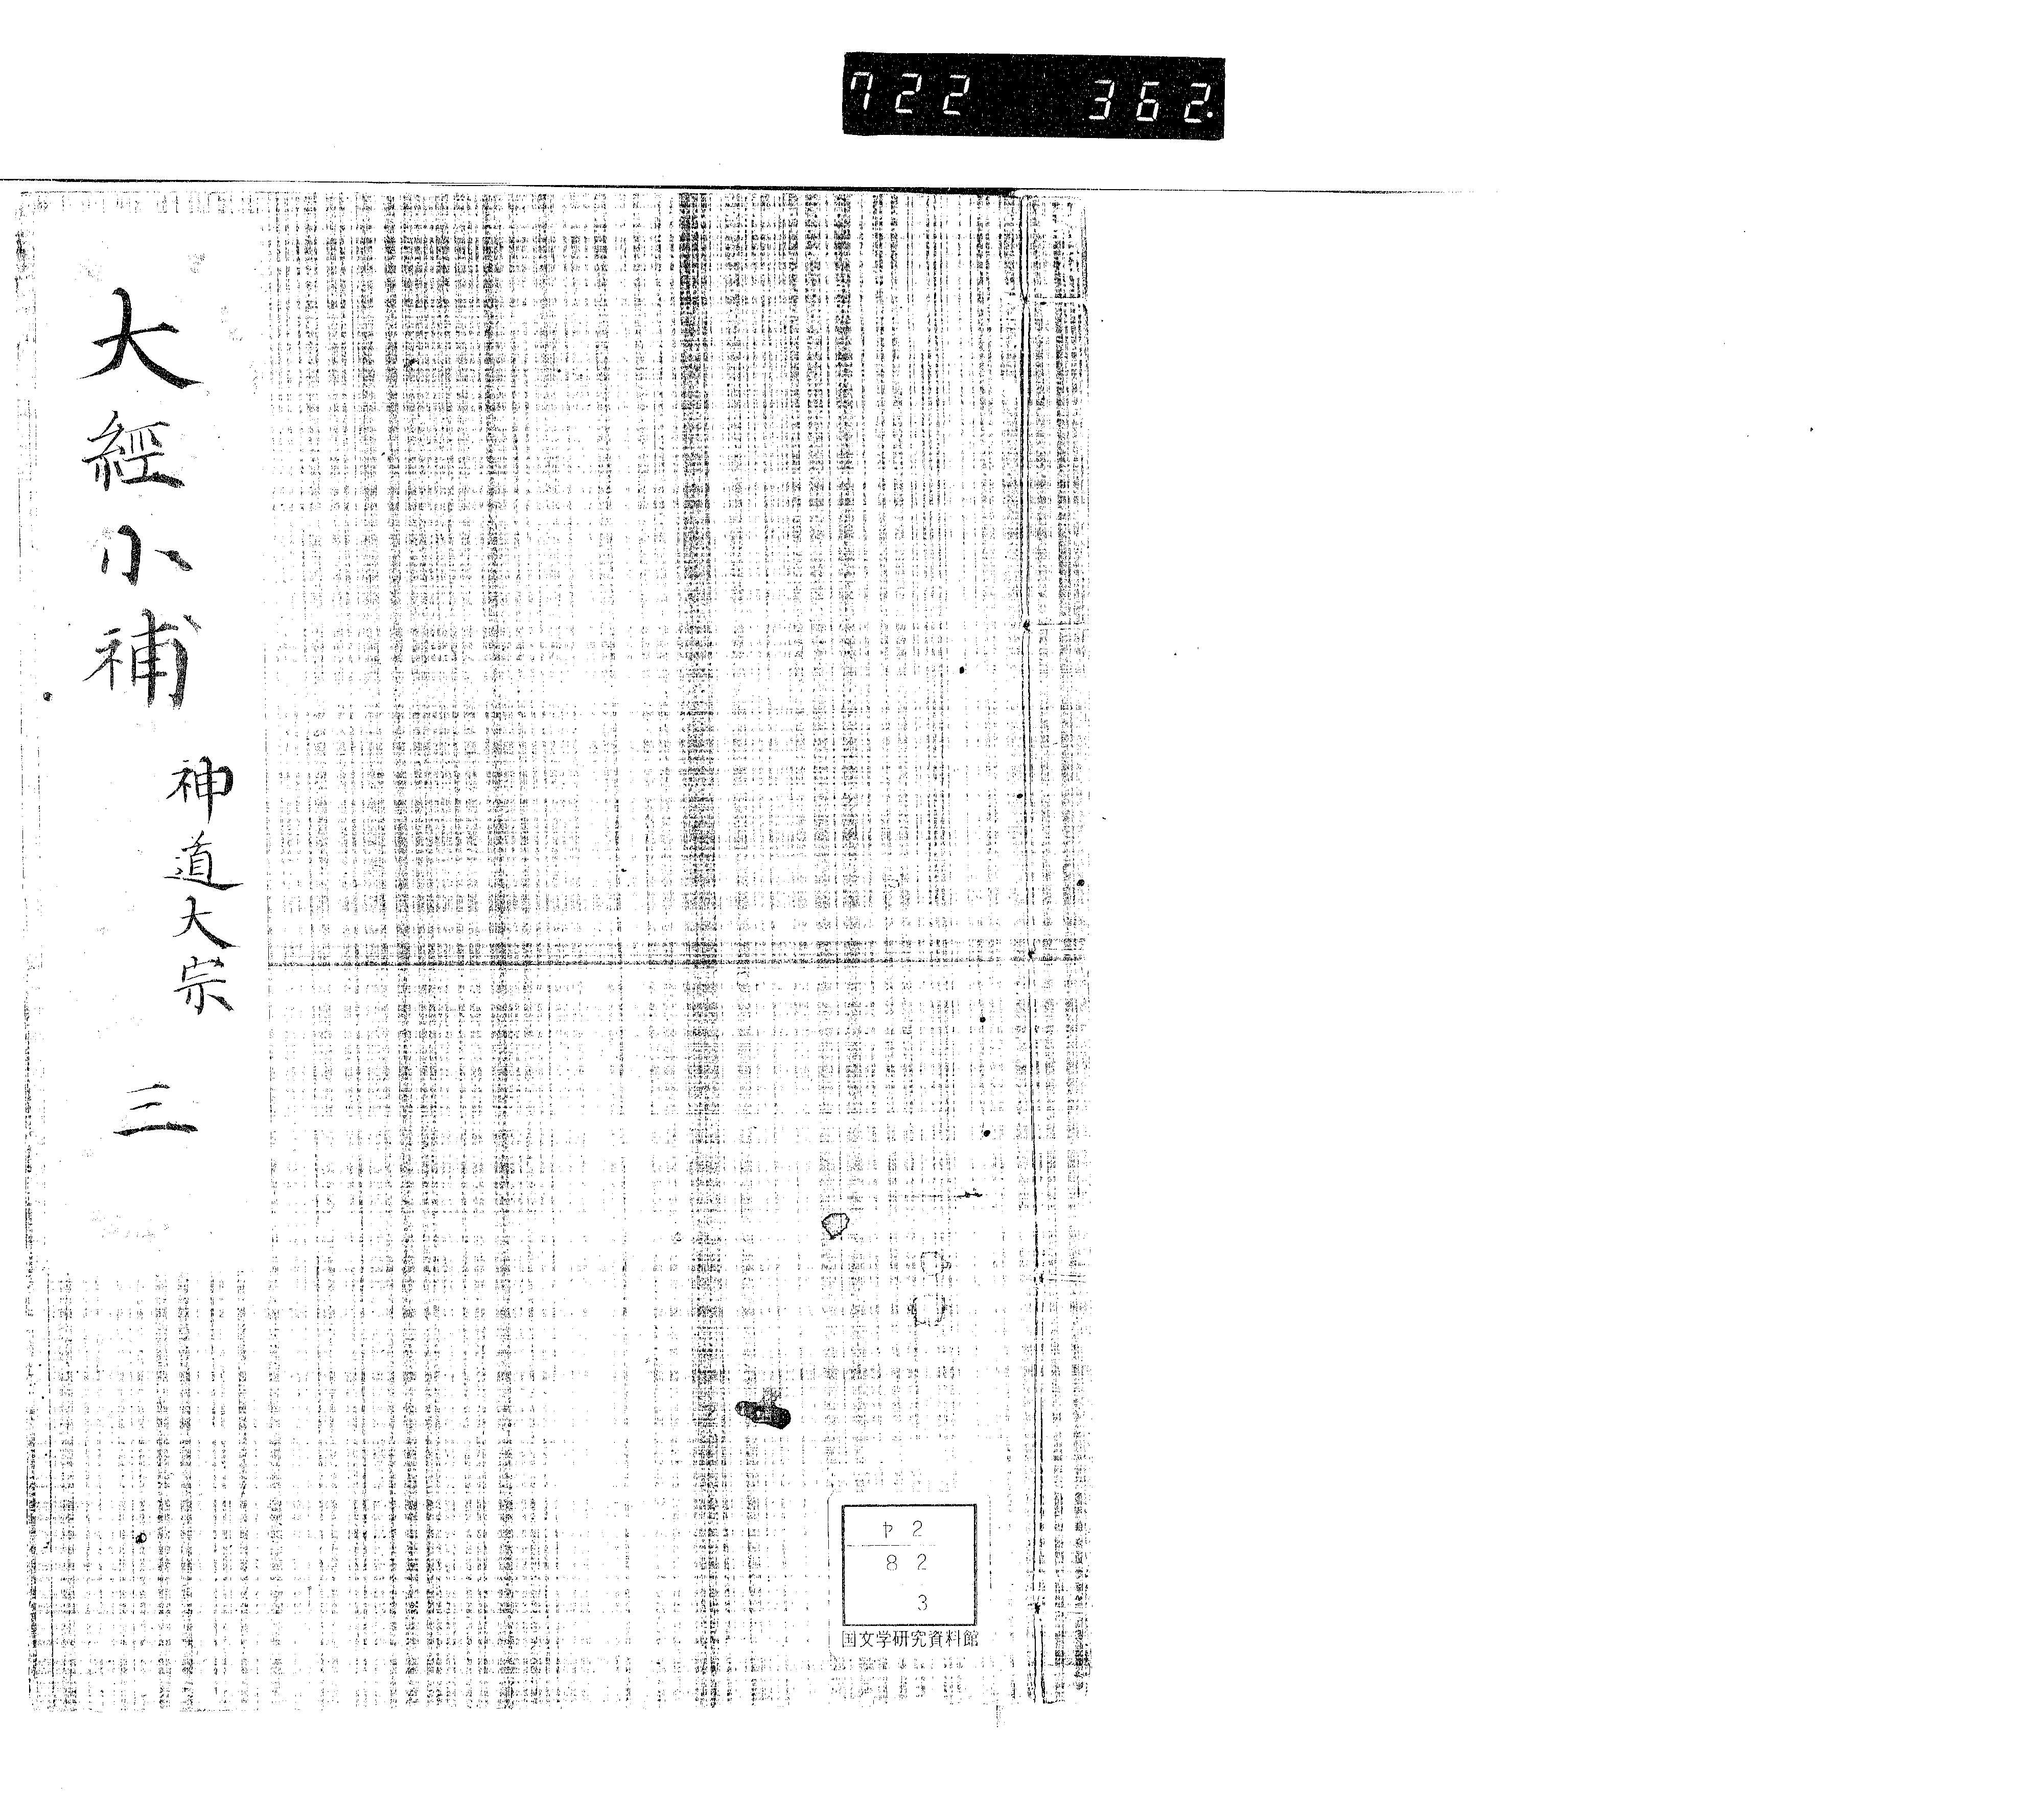 722 362.
大經小補
神道大宗
三
ヤ2
82
3
国文学研究資料館